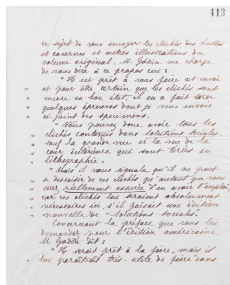 413
ce sujet de vous envoyer les clichés des bustes
et gravures et autres illustrations du
volume original. M. Godin me charge
de vous dire à ce propos ceci :
" Il est prêt à vous faire cet envoi
et pour être certain que les clichés sont
encore en bon état, il en a fait tirer
quelques épreuves dont je vous envoie
ci-joint des specimens.
" Vous pouvez donc avoir tous les
clichés contenus dans Solutions sociales
sauf la grande vue et la vue de la
cour intérieure qui sont tirés en
lithographie.
" Mais il vous signale qu'il ne peut
se dessaisir de ces clichés qu'autant que vous
seriez réellement assurée d'en avoir l'emploi
car ces clichés lui seraient absolument
nécessaires si, s'il faisait une édition
nouvelle de "Solutions sociales"
Concernant la préface que vous lui
demandez pour l'édition américaine,
M. Godin dit :
" Je serais prêt à la faire, mais il
me paraîtrait très utile de faire dans